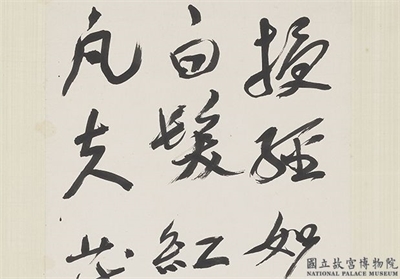 授經如
白髮紅
凡夫
國立故宮博物院
NATIONAL PALACE MUSEUM